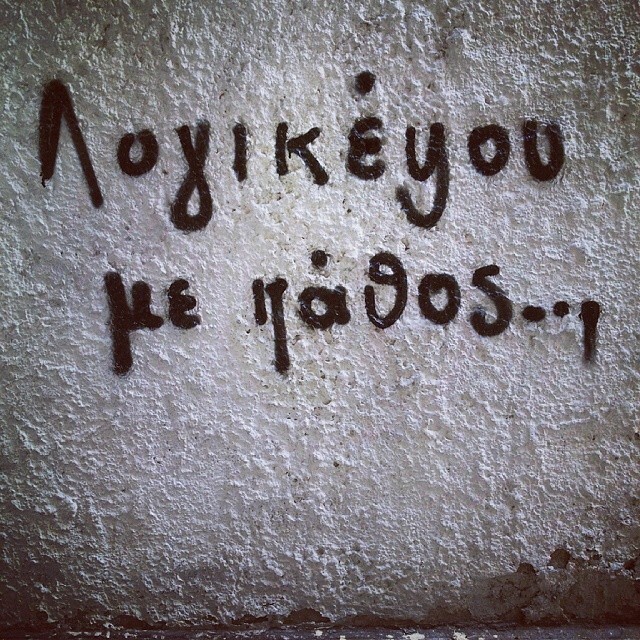 Λογικέψου
με πάθος...